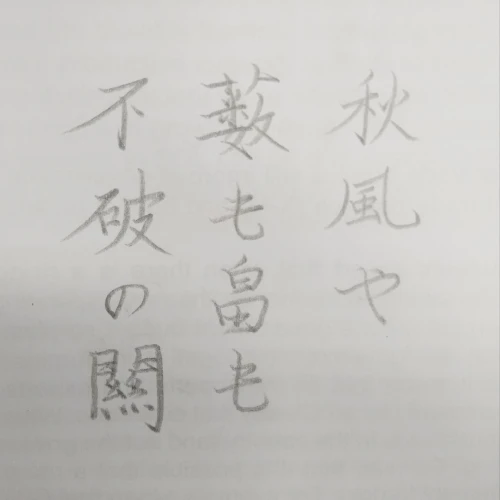 秋風や
藪も畠も
不破の関